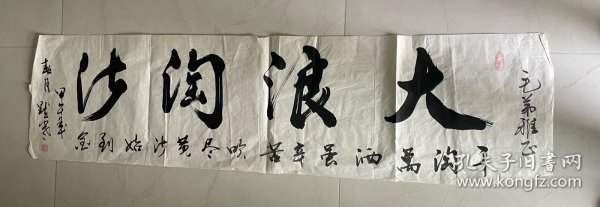 毛弟雅正
大浪淘沙
千淘萬洒虽辛苦吹尽黄沙始到金
甲午年
春月
孔夫子旧书网
www.kongfz.com